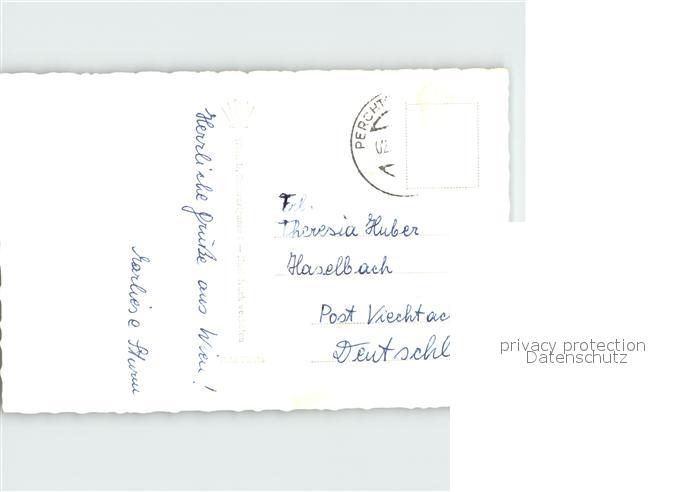 Herrliche Grüße aus Wien!
Marliese Sturm
PERCHT
Frl.
Theresia Huber
Haselbach
Post Viechtac
Deutschl
privacy protection
Datenschutz